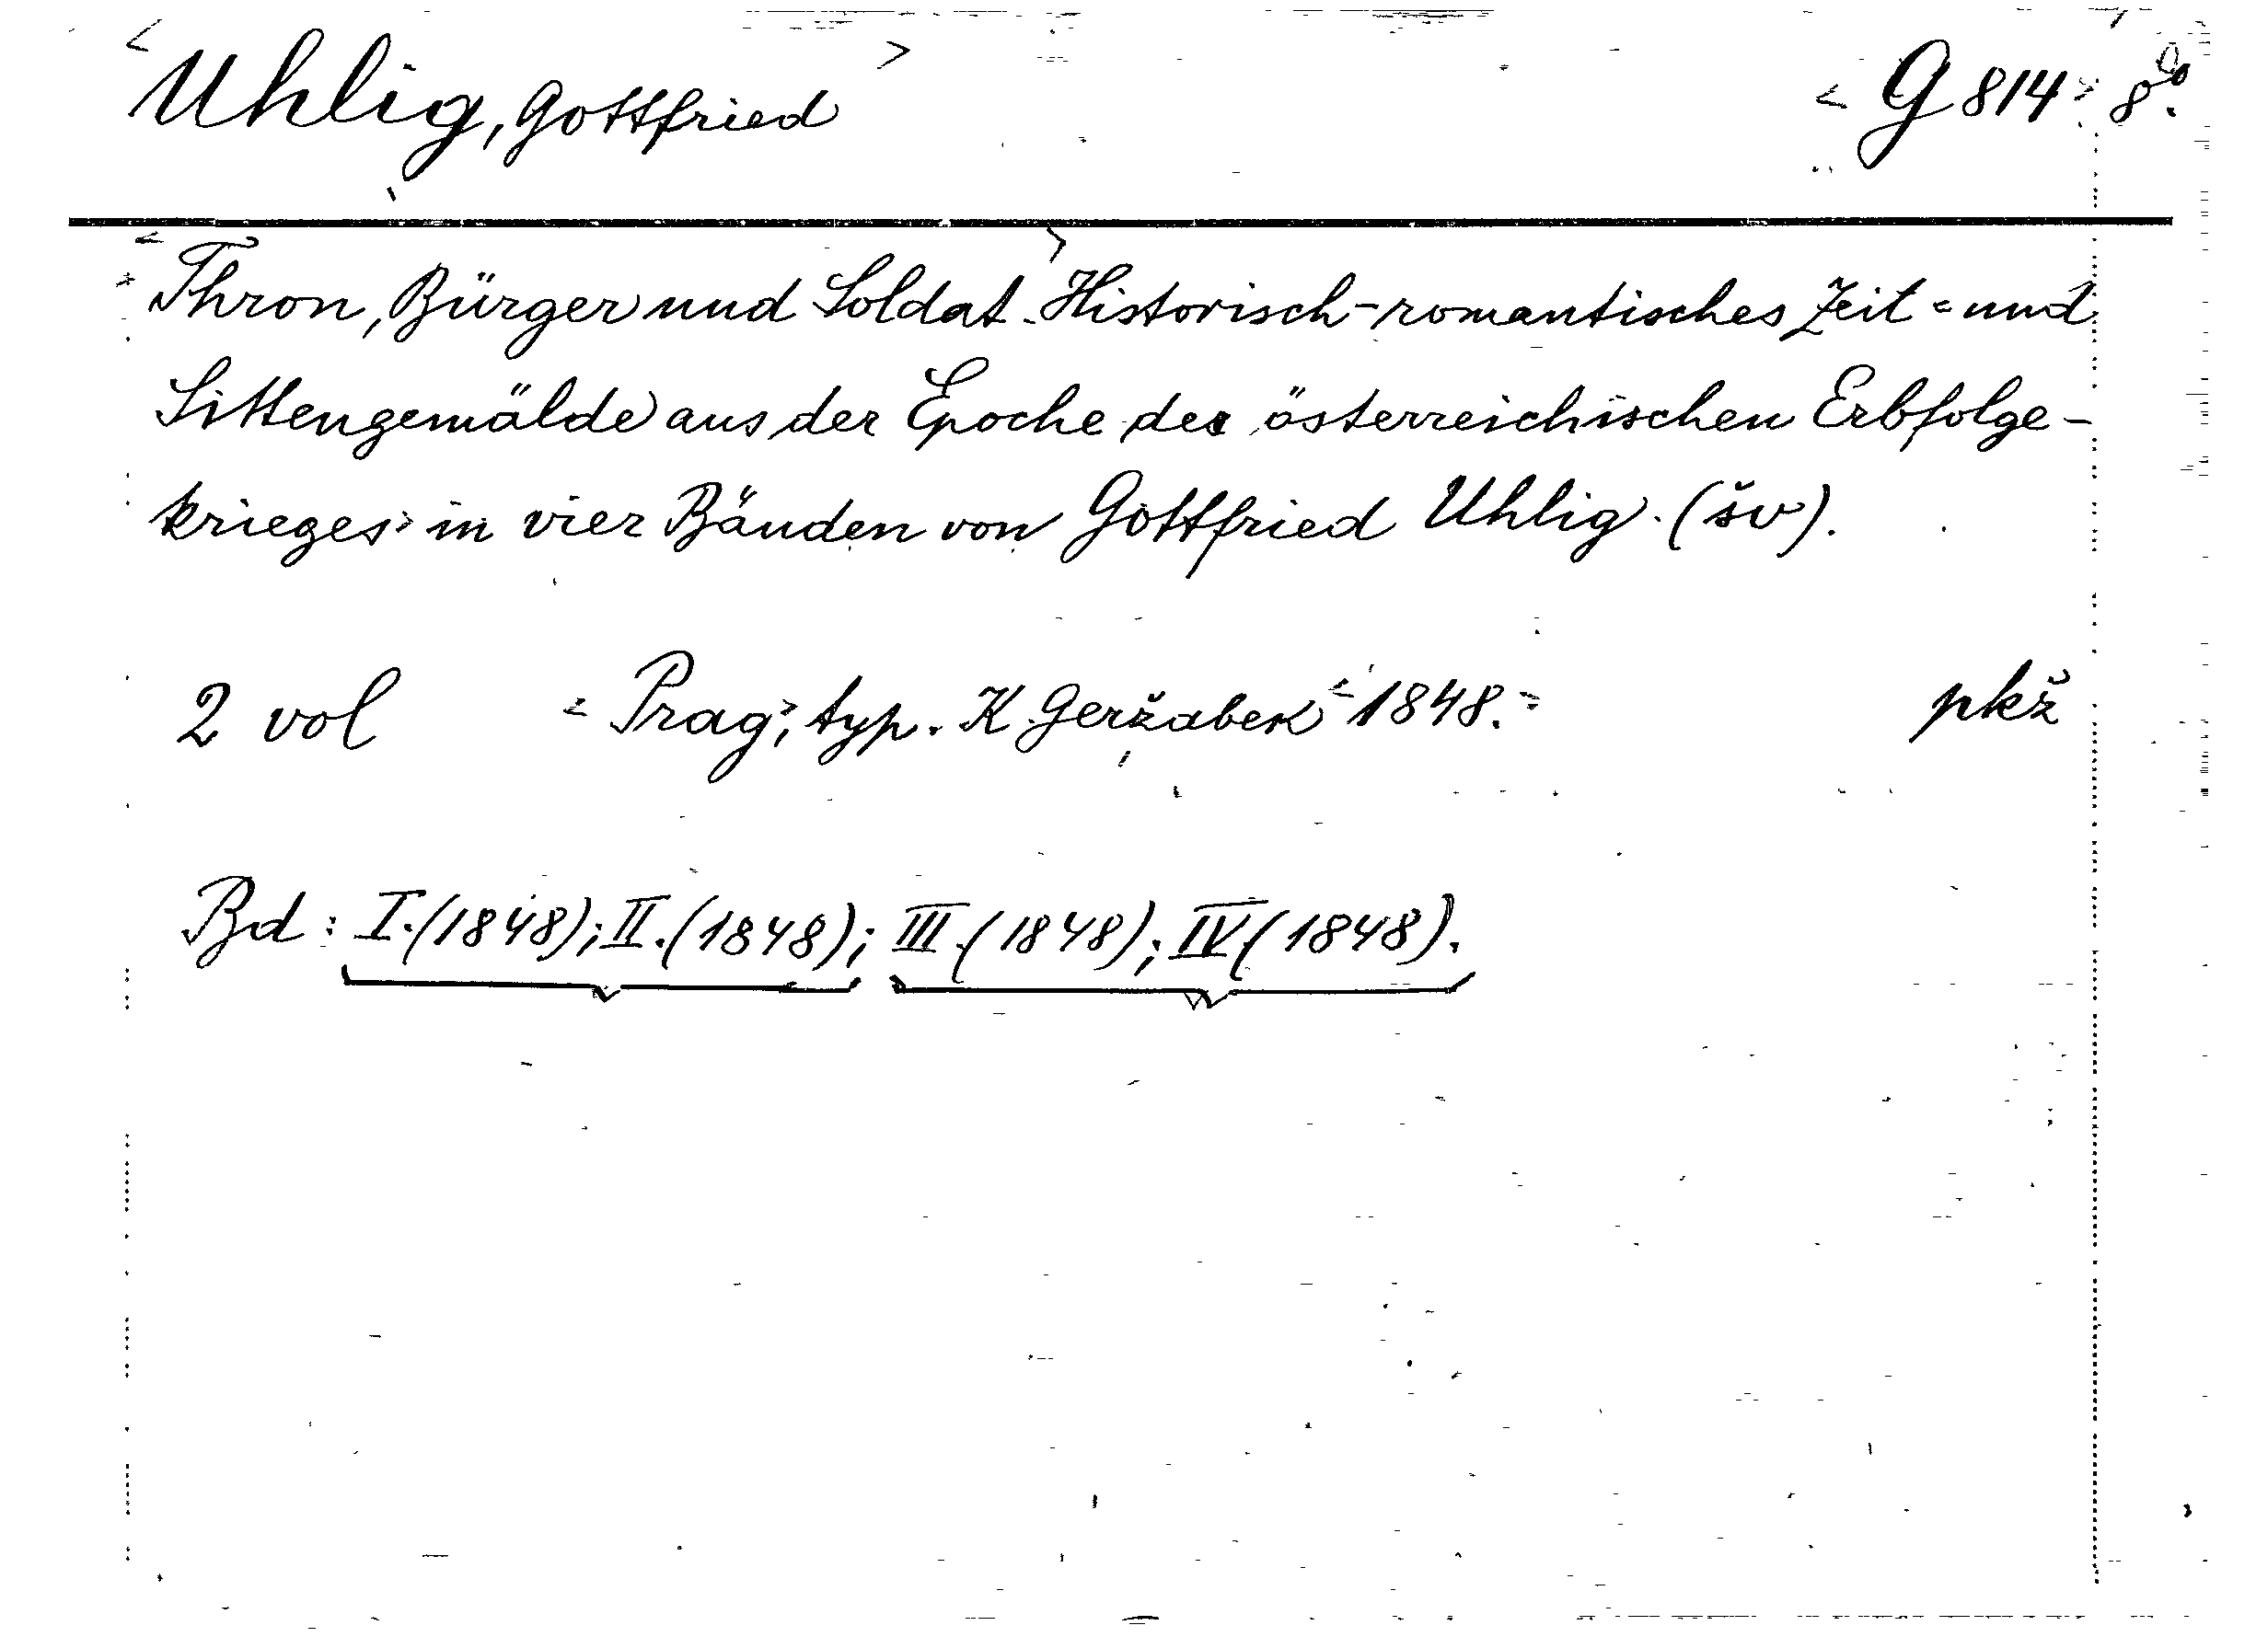 < Uhlig, Gottfried > < G 814 > 8º.
< Thron, Bürger und Soldat. > Historisch-romantisches Zeit= und
Sittengemälde aus der Epoche des österreichischen Erbfolge-
krieges in vier Bänden von Gottfried Uhlig. (šv).
2 vol < Prag >, typ. K Geržabek < 1848. > pkž
Bd: I.(1848); II.(1848); III.(1848); IV.(1848).